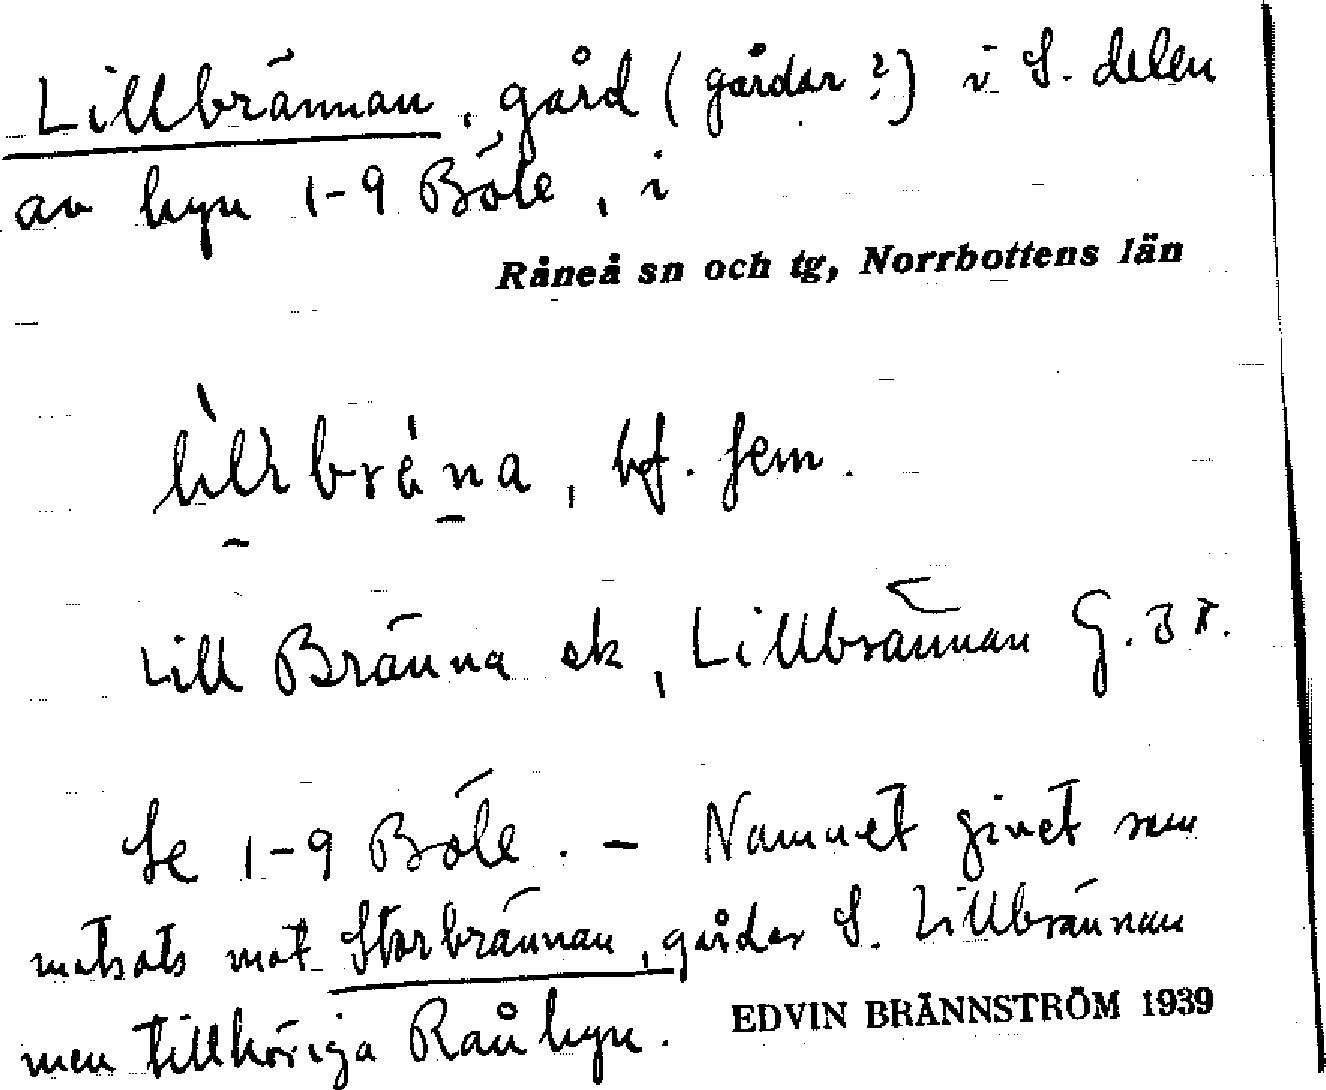 Lillbrännan, gård (gårdar?) i S. delen
av byn 1-9 Böle, i
Råneå sn och tg, Norrbottens län
bf. fem.
Lill Bränna ek, Lillbrännan G.
Se 1-9 Böle. - Namnet givet som
motsats mot Storbrännan, gårdar S. Lillbrännan
men tillhöriga Råbyn.
EDVIN BRÄNNSTRÖM 1939